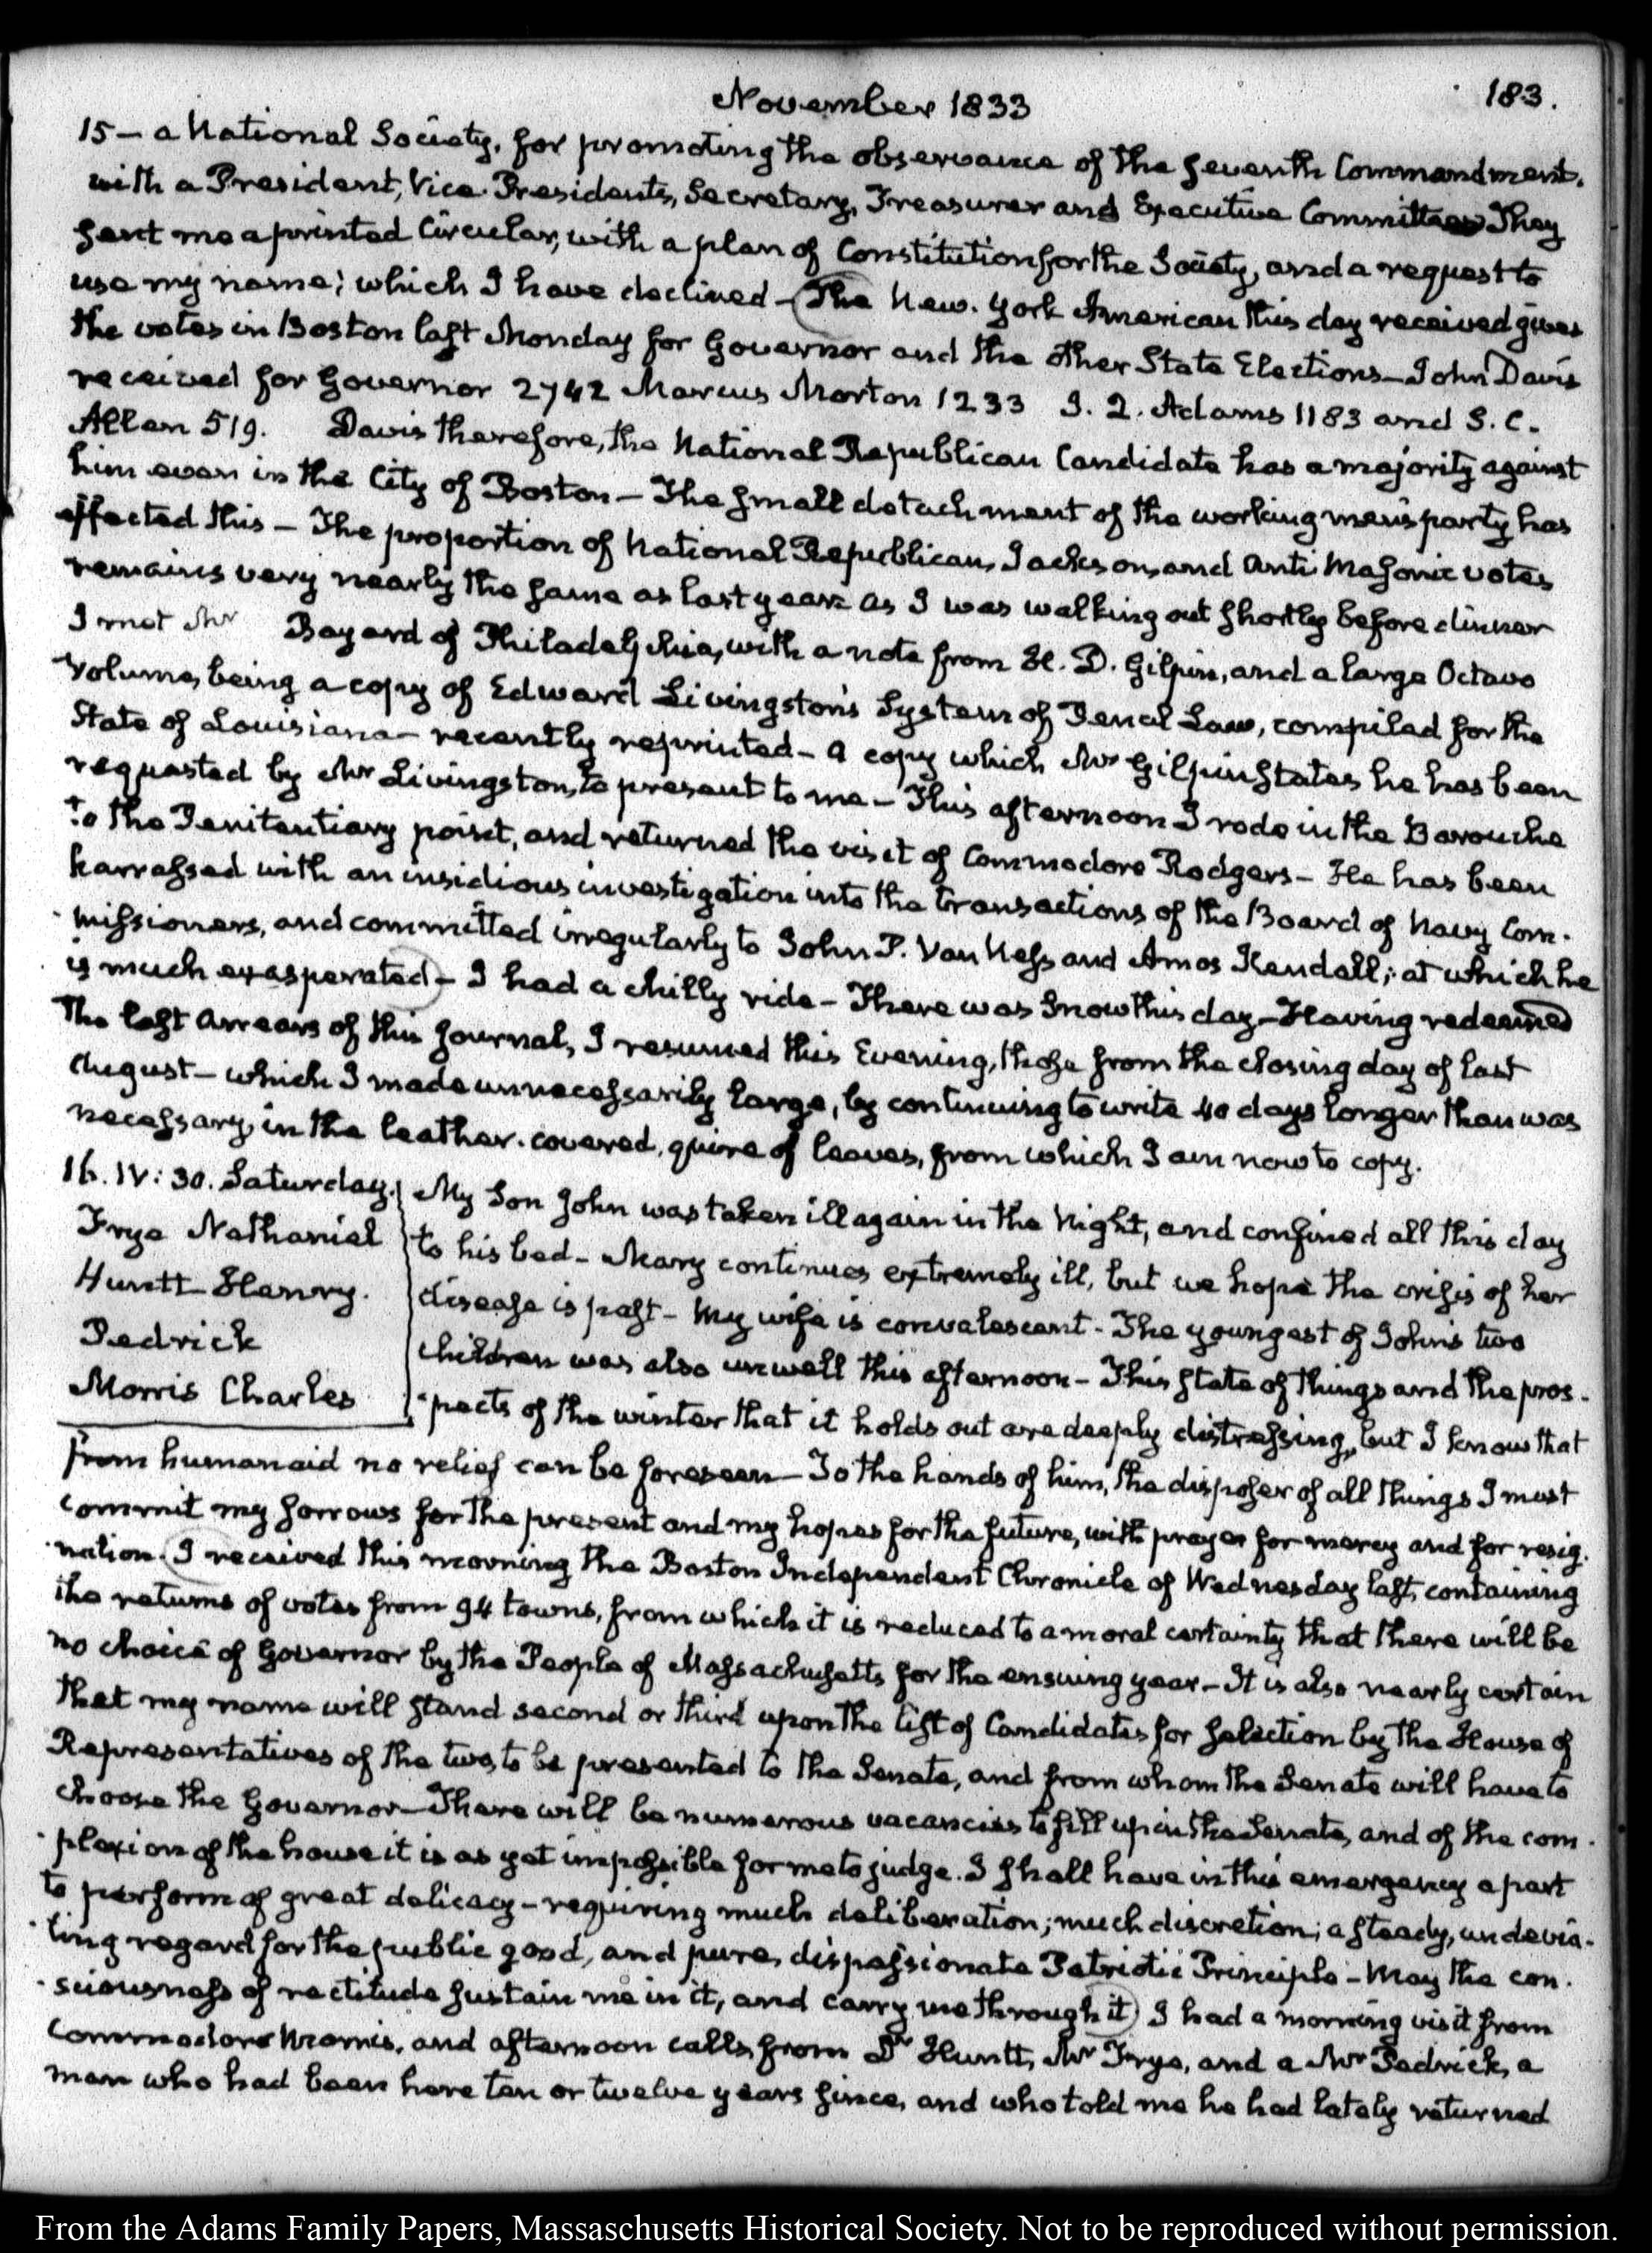 November 1833
183.
15 — a National Society, for promoting the observance of the Seventh Commandment.
with a President, Vice-Presidents, Secretary, Treasurer and Executive Committee They
sent me a printed Circular, with a plan of Constitution for the Society, and a request to
use my name; which I have declined — The New-York American this day received gives
the votes in Boston last Monday for Governor and the other State Elections — John Davis
received for Governor 2742 Marcus Morton 1233 J. Q. Adams 1183 and S. C.
Allen 519. Davis therefore, the National Republican Candidate has a majority against
him even in the City of Boston — The small detachment of the working men's party has
effected this — The proportion of National Republican, Jackson, and Anti Masonic votes
remains very nearly the same as last year. As I was walking out shortly before dinner
I met Mr Bayard of Philadelphia, with a note from H. D. Gilpin, and a large Octavo
Volume, being a copy of Edward Livingston's System of Penal Law, compiled for the
State of Louisiana — recently reprinted — a copy which Mr Gilpin states he has been
requested by Mr Livingston, to present to me — This afternoon I rode in the Barouche
to the Penitentiary point, and returned the visit of Commodore Rodgers — He has been
harrassed with an insidious investigation into the transactions of the Board of Navy Com-
missioners, and committed irregularly to John P. Van Ness and Amos Kendall; at which he
is much exasperated — I had a chilly ride — There was snow this day — Having redeemed
the last arrears of this Journal, I resumed this Evening, those from the closing day of last
August — which I made unnecessarily large, by continuing to write 40 days longer than was
necessary, in the leather-covered, quire of leaves, from which I am now to copy.
16. IV: 30. Saturday.
Frye Nathaniel
Huntt Henry.
Pedrick
Morris Charles
My Son John was taken ill again in the Night, and confined all this day
to his bed — Mary continues extremely ill, but we hope the crisis of her
disease is past — My wife is convalescent — The youngest of John's two
children was also unwell this afternoon — This state of things and the pros-
pects of the winter that it holds out are deeply distressing, but I know that
from human aid no relief can be foreseen — To the hands of him, the disposer of all things I must
commit my sorrows for the present and my hopes for the future, with prayer for mercy and for resig-
nation. I received this morning the Boston Independent Chronicle of Wednesday last, containing
the returns of votes from 94 towns, from which it is reduced to a moral certainty that there will be
no choice of Governor by the People of Massachusetts for the ensuing year — It is also nearly certain
that my name will stand second or third upon the list of Candidates for selection by the House of
Representatives of the two, to be presented to the Senate, and from whom the Senate will have to
choose the Governor — There will be numerous vacancies to fill up in the Senate, and of the com-
plexion of the house it is as yet impossible for me to judge. I shall have in this emergency a part
to perform of great delicacy — requiring much deliberation; much discretion; a steady, undevia-
ting regard for the public good, and pure, dispassionate Patriotic Principle — May the con-
sciousness of rectitude sustain me in it, and carry me through it) I had a morning visit from
Commodore Morris, and afternoon calls from Dr Huntt, Mr Frye, and a Mr Pedrick, a
man who had been here ten or twelve years since, and who told me he had lately returned
From the Adams Family Papers, Massaschusetts Historical Society. Not to be reproduced without permission.